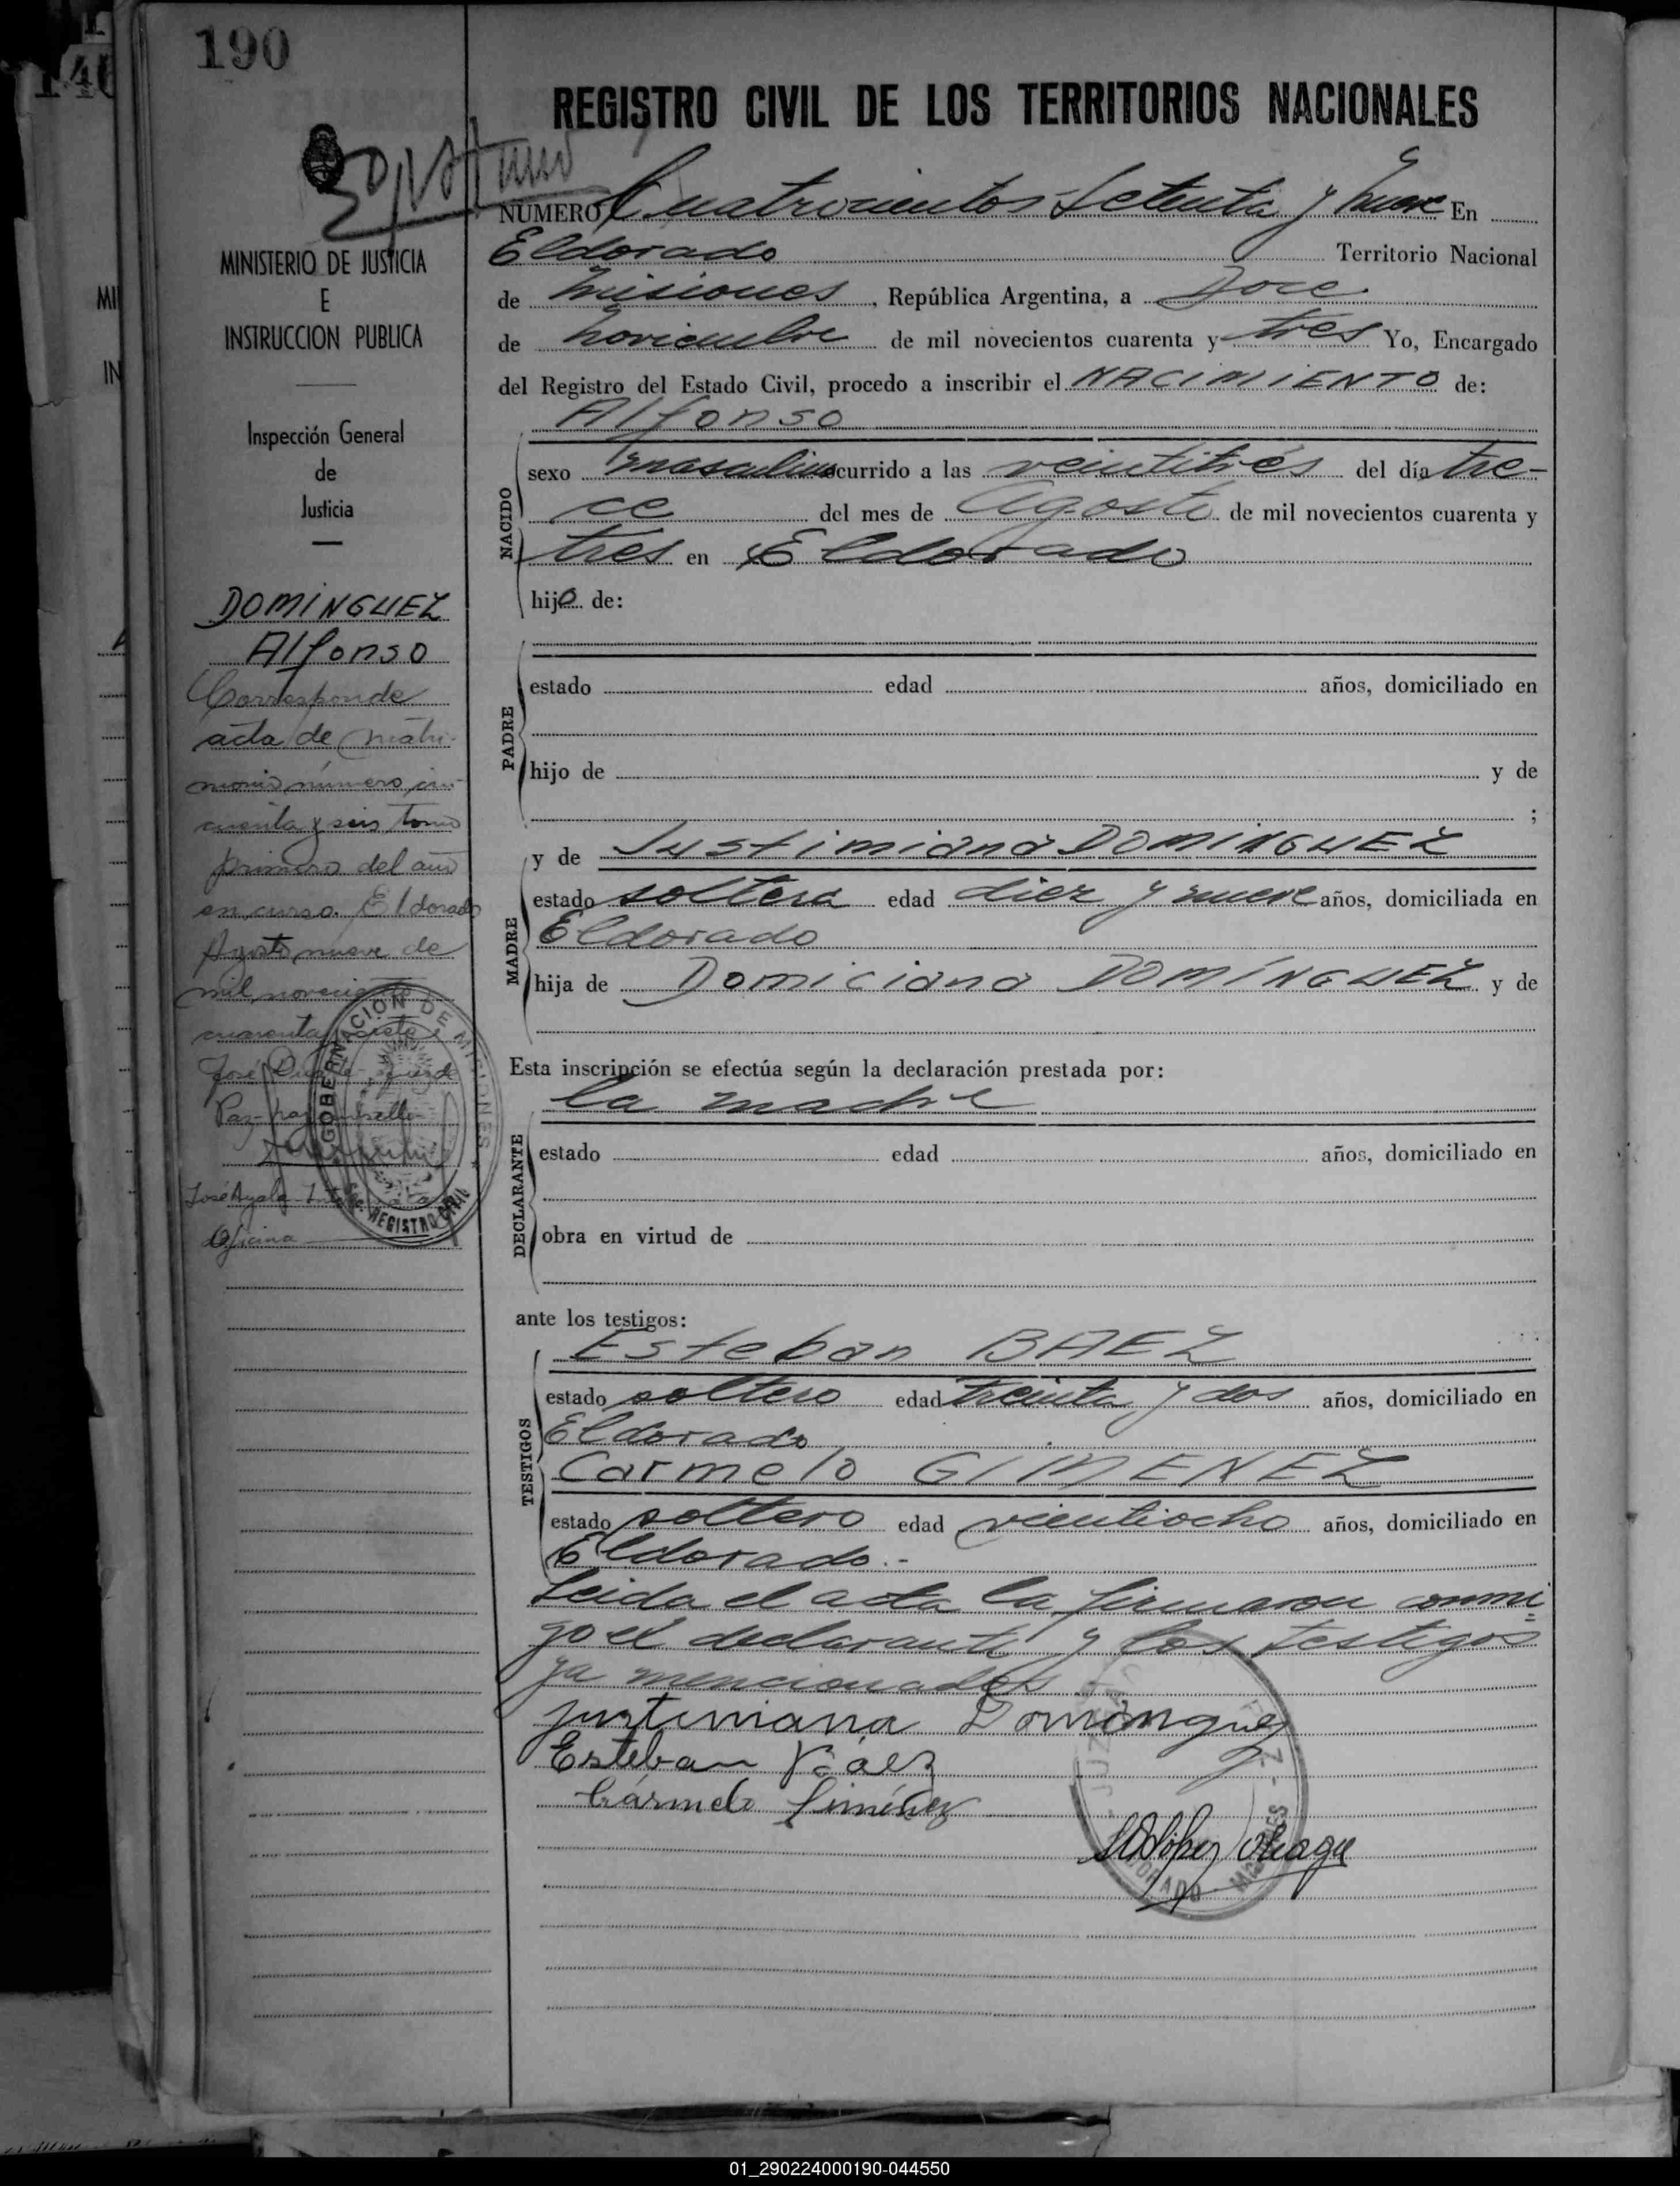 190
REGISTRO CIVIL DE LOS TERRITORIOS NACIONALES
NUMERO Cuatrocientos Setenta y nueve En
Eldorado Territorio Nacional
de Misiones, República Argentina, a Doce
de Noviembre de mil novecientos cuarenta y tres Yo, Encargado
del Registro del Estado Civil, procedo a inscribir el NACIMIENTO de:
Alfonso
NACIDO
sexo masculino ocurrido a las veintitrés del día tre-
ce del mes de Agosto de mil novecientos cuarenta y
tres en Eldorado
hijo de:
PADRE
estado edad años, domiciliado en
hijo de y de
;
MADRE
y de Justimiana DOMINGUEZ
estado soltera edad diez y nueve años, domiciliada en
Eldorado
hija de Domiciana DOMÍNGUEZ y de
Esta inscripción se efectúa según la declaración prestada por:
la madre
DECLARANTE
estado edad años, domiciliado en
obra en virtud de
ante los testigos:
TESTIGOS
Esteban BAEZ
estado soltero edad treinta y dos años, domiciliado en
Eldorado
Carmelo GIMENEZ
estado soltero edad vientiocho años, domiciliado en
Eldorado.-
Leida el acta la firmaron conmi
go el declarante y los testigos
ya mencionados
Justimiana Dominguez
Esteban Váez
Cármelo Jiménez
MINISTERIO DE JUSTICIA
E
INSTRUCCION PUBLICA
Inspección General
de
Justicia
DOMINGUEZ
Alfonso
Corresponde
acta de matri-
monio número cin-
cuenta y seis tomo
primero del año
en curso. Eldorado
Agosto nueve de
mil novecientos
cuarenta y siete
José Juez de
Paz
José Ayala
Oficina
GOBERNACION DE MISIONES
REGISTRO CIVIL
01_290224000190-044550